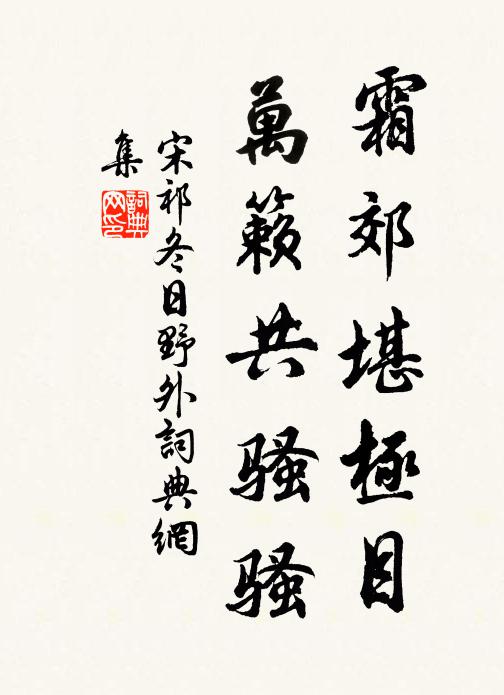 霜郊堪極目
萬籟共骚骚
宋祁冬日野外詞典網
集
詞典
网印